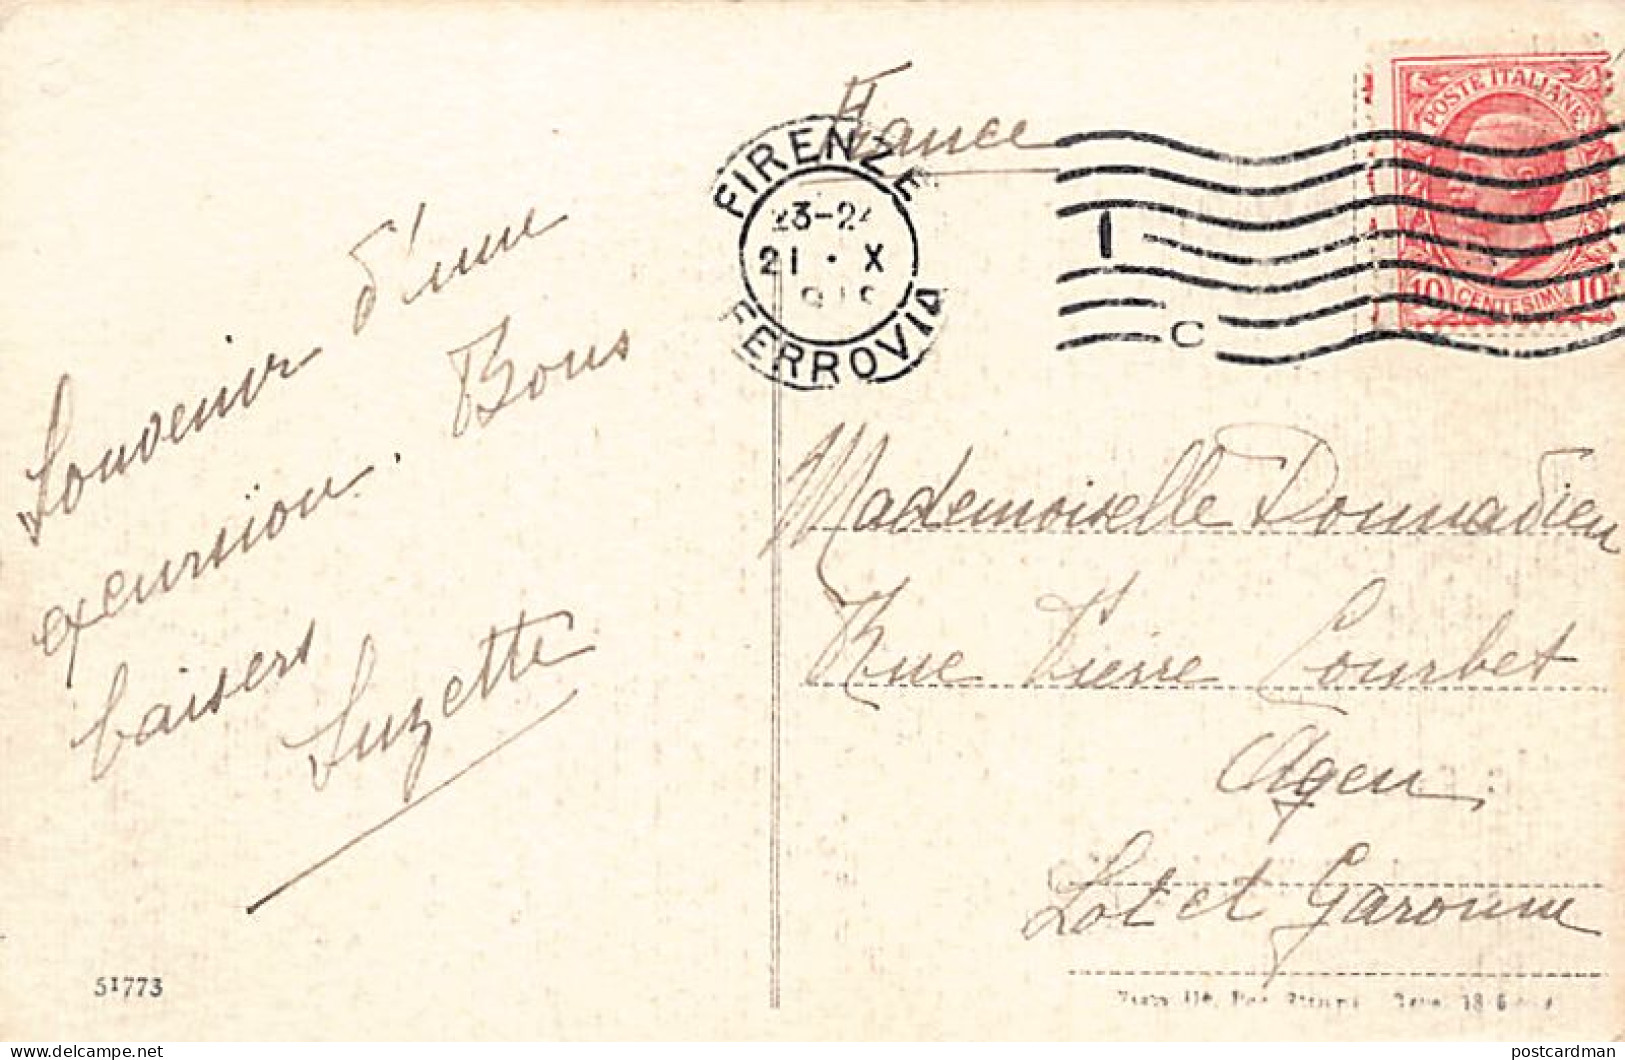 Souvenir d'une
excursion. Bons
baisers
Suzette
51773
France
FIRENZE
23-24
21 · X
FERROVIA
1
C
POSTE ITALIANE
10 CENTESIMI 10
Mademoiselle Donnadieu
Rue Pierre Courbet
Agen
Lot et Garonne
postcardman